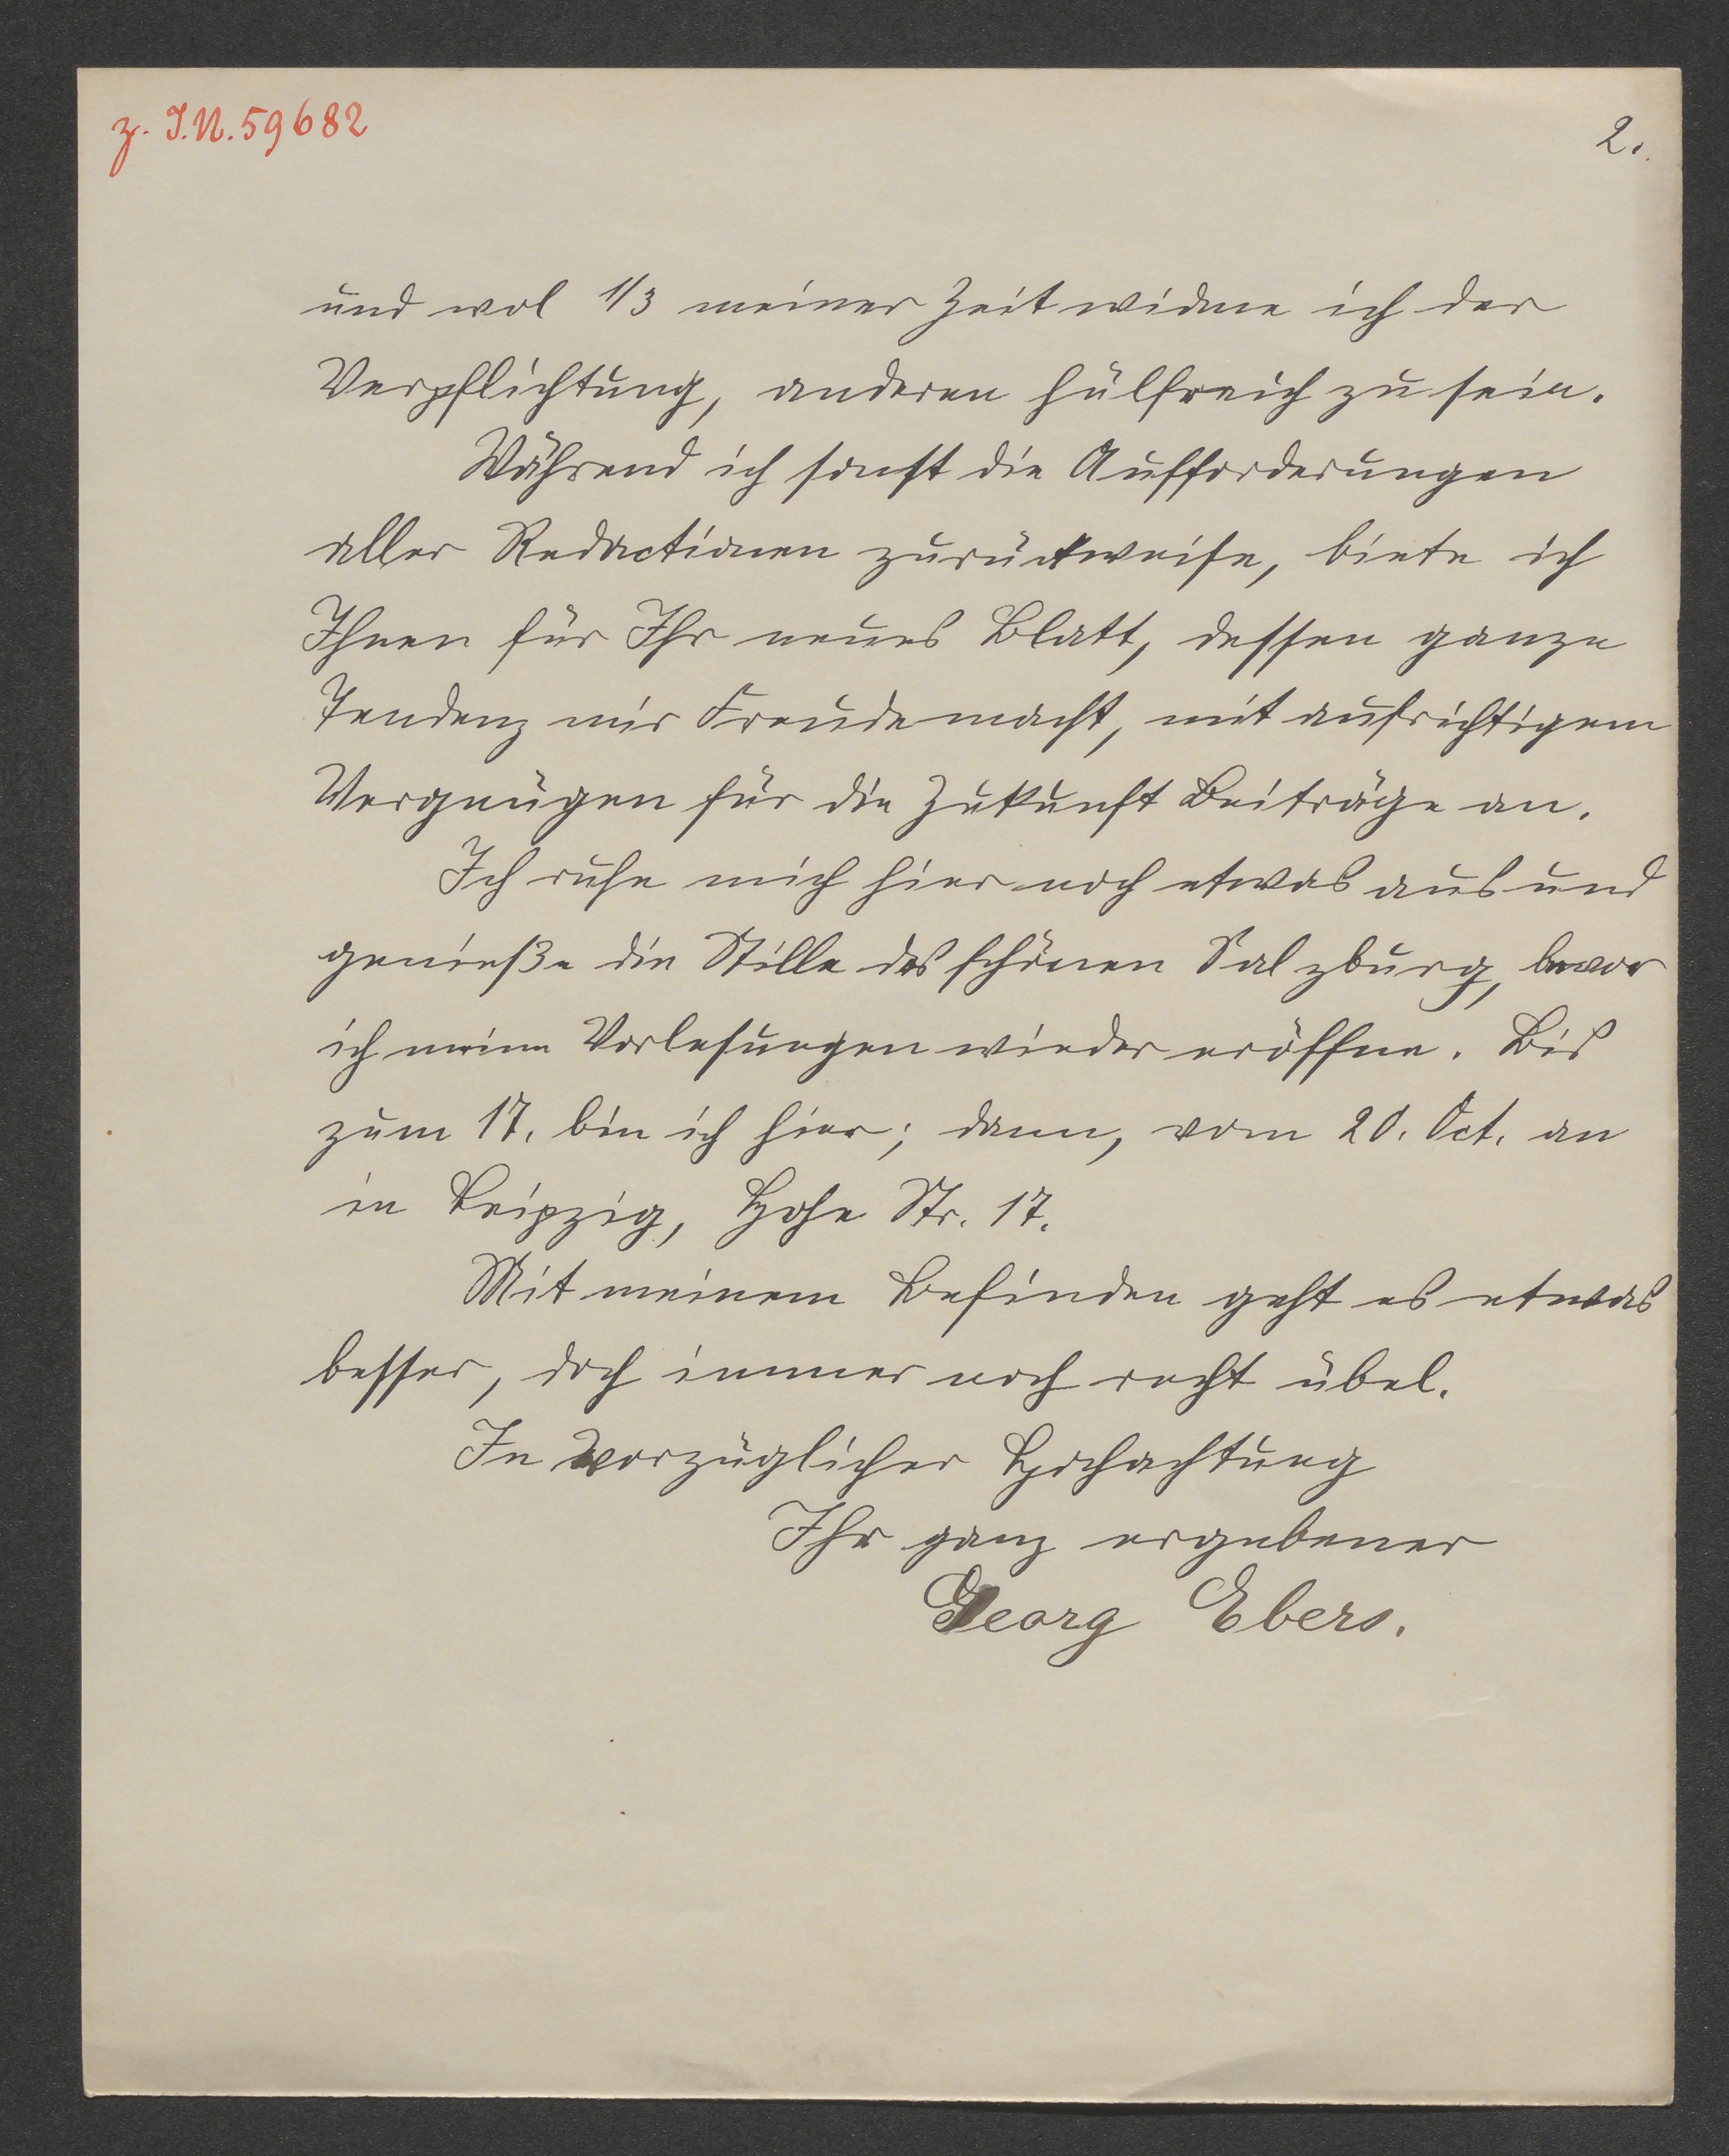 z. I.N. 59682
2.
und wol 1/3 meiner Zeit widme ich der
Verpflichtung, anderen hülfreich zu sein.
Während ich sonst die Aufforderungen
aller Redactionen zurückweise, biete ich
Ihnen für Ihr neues Blatt, dessen ganze
Tendenz mir Freude macht, mit aufrichtigem
Vergnügen für die Zukunft Beiträge an.
Ich ruhe mich hier noch etwas aus und
genieße die Stille des schönen Salzburg, bevor
ich meine Vorlesungen wieder eröffne. Bis
zum 17. bin ich hier; dann, vom 20. Oct. an
in Leipzig, Hohe Str. 17.
Mit meinem Befinden geht es etwas
besser, doch immer noch recht übel.
In vorzüglicher Hochachtung
Ihr ganz ergebener
Georg Ebers.